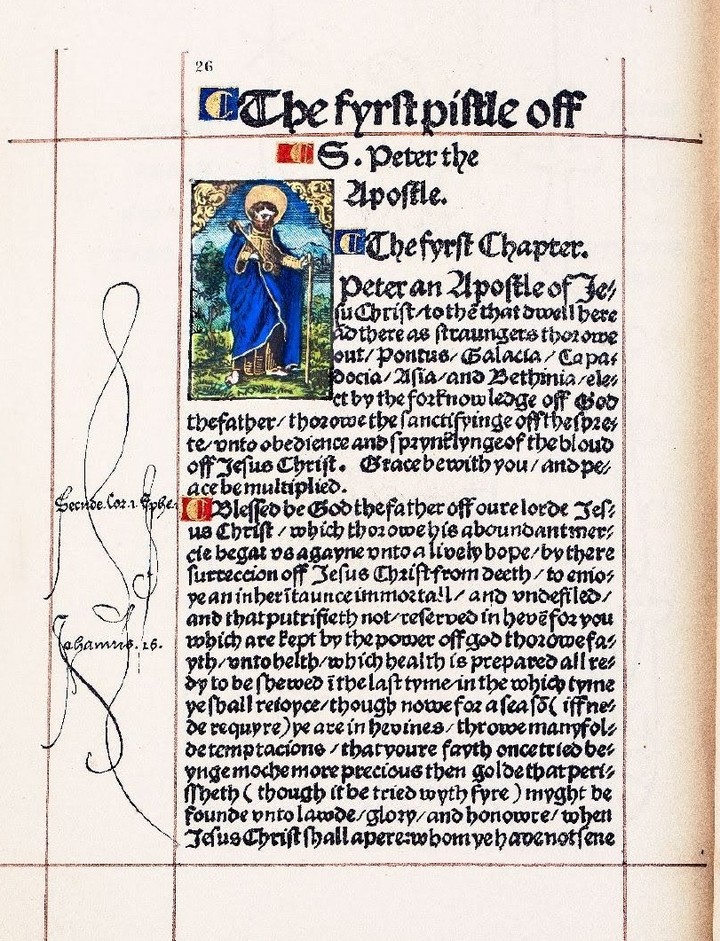 26
The fyrst pistle off
S. Peter the
Apostle.
The fyrst Chapter.
Peter an Apostle of Je⸗
su Christ/ to thē that dwell here
ād there as straungers thorowe
out/ Pontus/ Galacia/ Capa⸗
docia/ Asia/ and Bethinia/ ele⸗
ct by the forknowledge off God
the father/ thorowe the sanctifyinge off the spre⸗
te/ vnto obedience and sprynklynge of the bloud
off Jesus Christ. Grace be with you/ and pe⸗
ace be multiplied.
Blessed be God the father off oure lorde Jes⸗
us Christ/ which thorowe his aboundant mer⸗
cie begat vs agayne vnto a lively hope/ by there
surreccion off Jesus Christ from deeth/ to enio⸗
ye an inheritaunce immortall/ and vndefiled/
and that putrifieth not/ reserved in hevē for you
which are kept by the power off god thorowe fa⸗
yth/ vnto helth/ which health is prepared all re⸗
dy to be shewed ī the last tyme/ in the which tyme
ye shall reioyce/ though nowe for a seasō ( iff ne⸗
de requyre) ye are in hevines/ throwe manyfol⸗
de temptacions/ that youre fayth once tried be⸗
ynge moche more precious then golde that peri⸗
ssheth ( though it be tried wyth fyre ) myght be
founde vnto lawde/ glory/ and honowre/ when
Jesus Christ shall apere: whom ye have not sene
Secunde. Cor. 1. Ephe. 1
Johannis. 16.